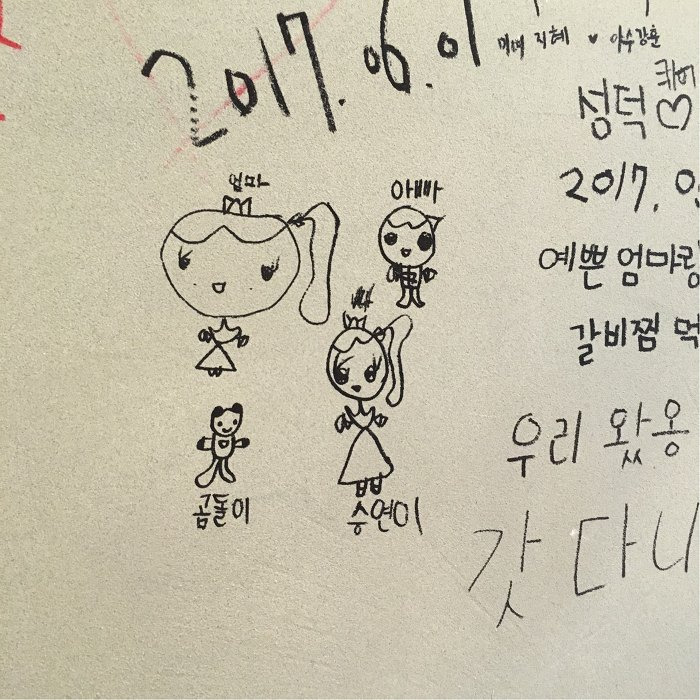 2017.06.01
미녀 지혜 ♥ 야수강훈
성덕 ♡
2017.0
엄마
아빠
예쁜 엄마랑
갈비찜 먹
우리 왔옹
곰돌이
승연이
갓 다니